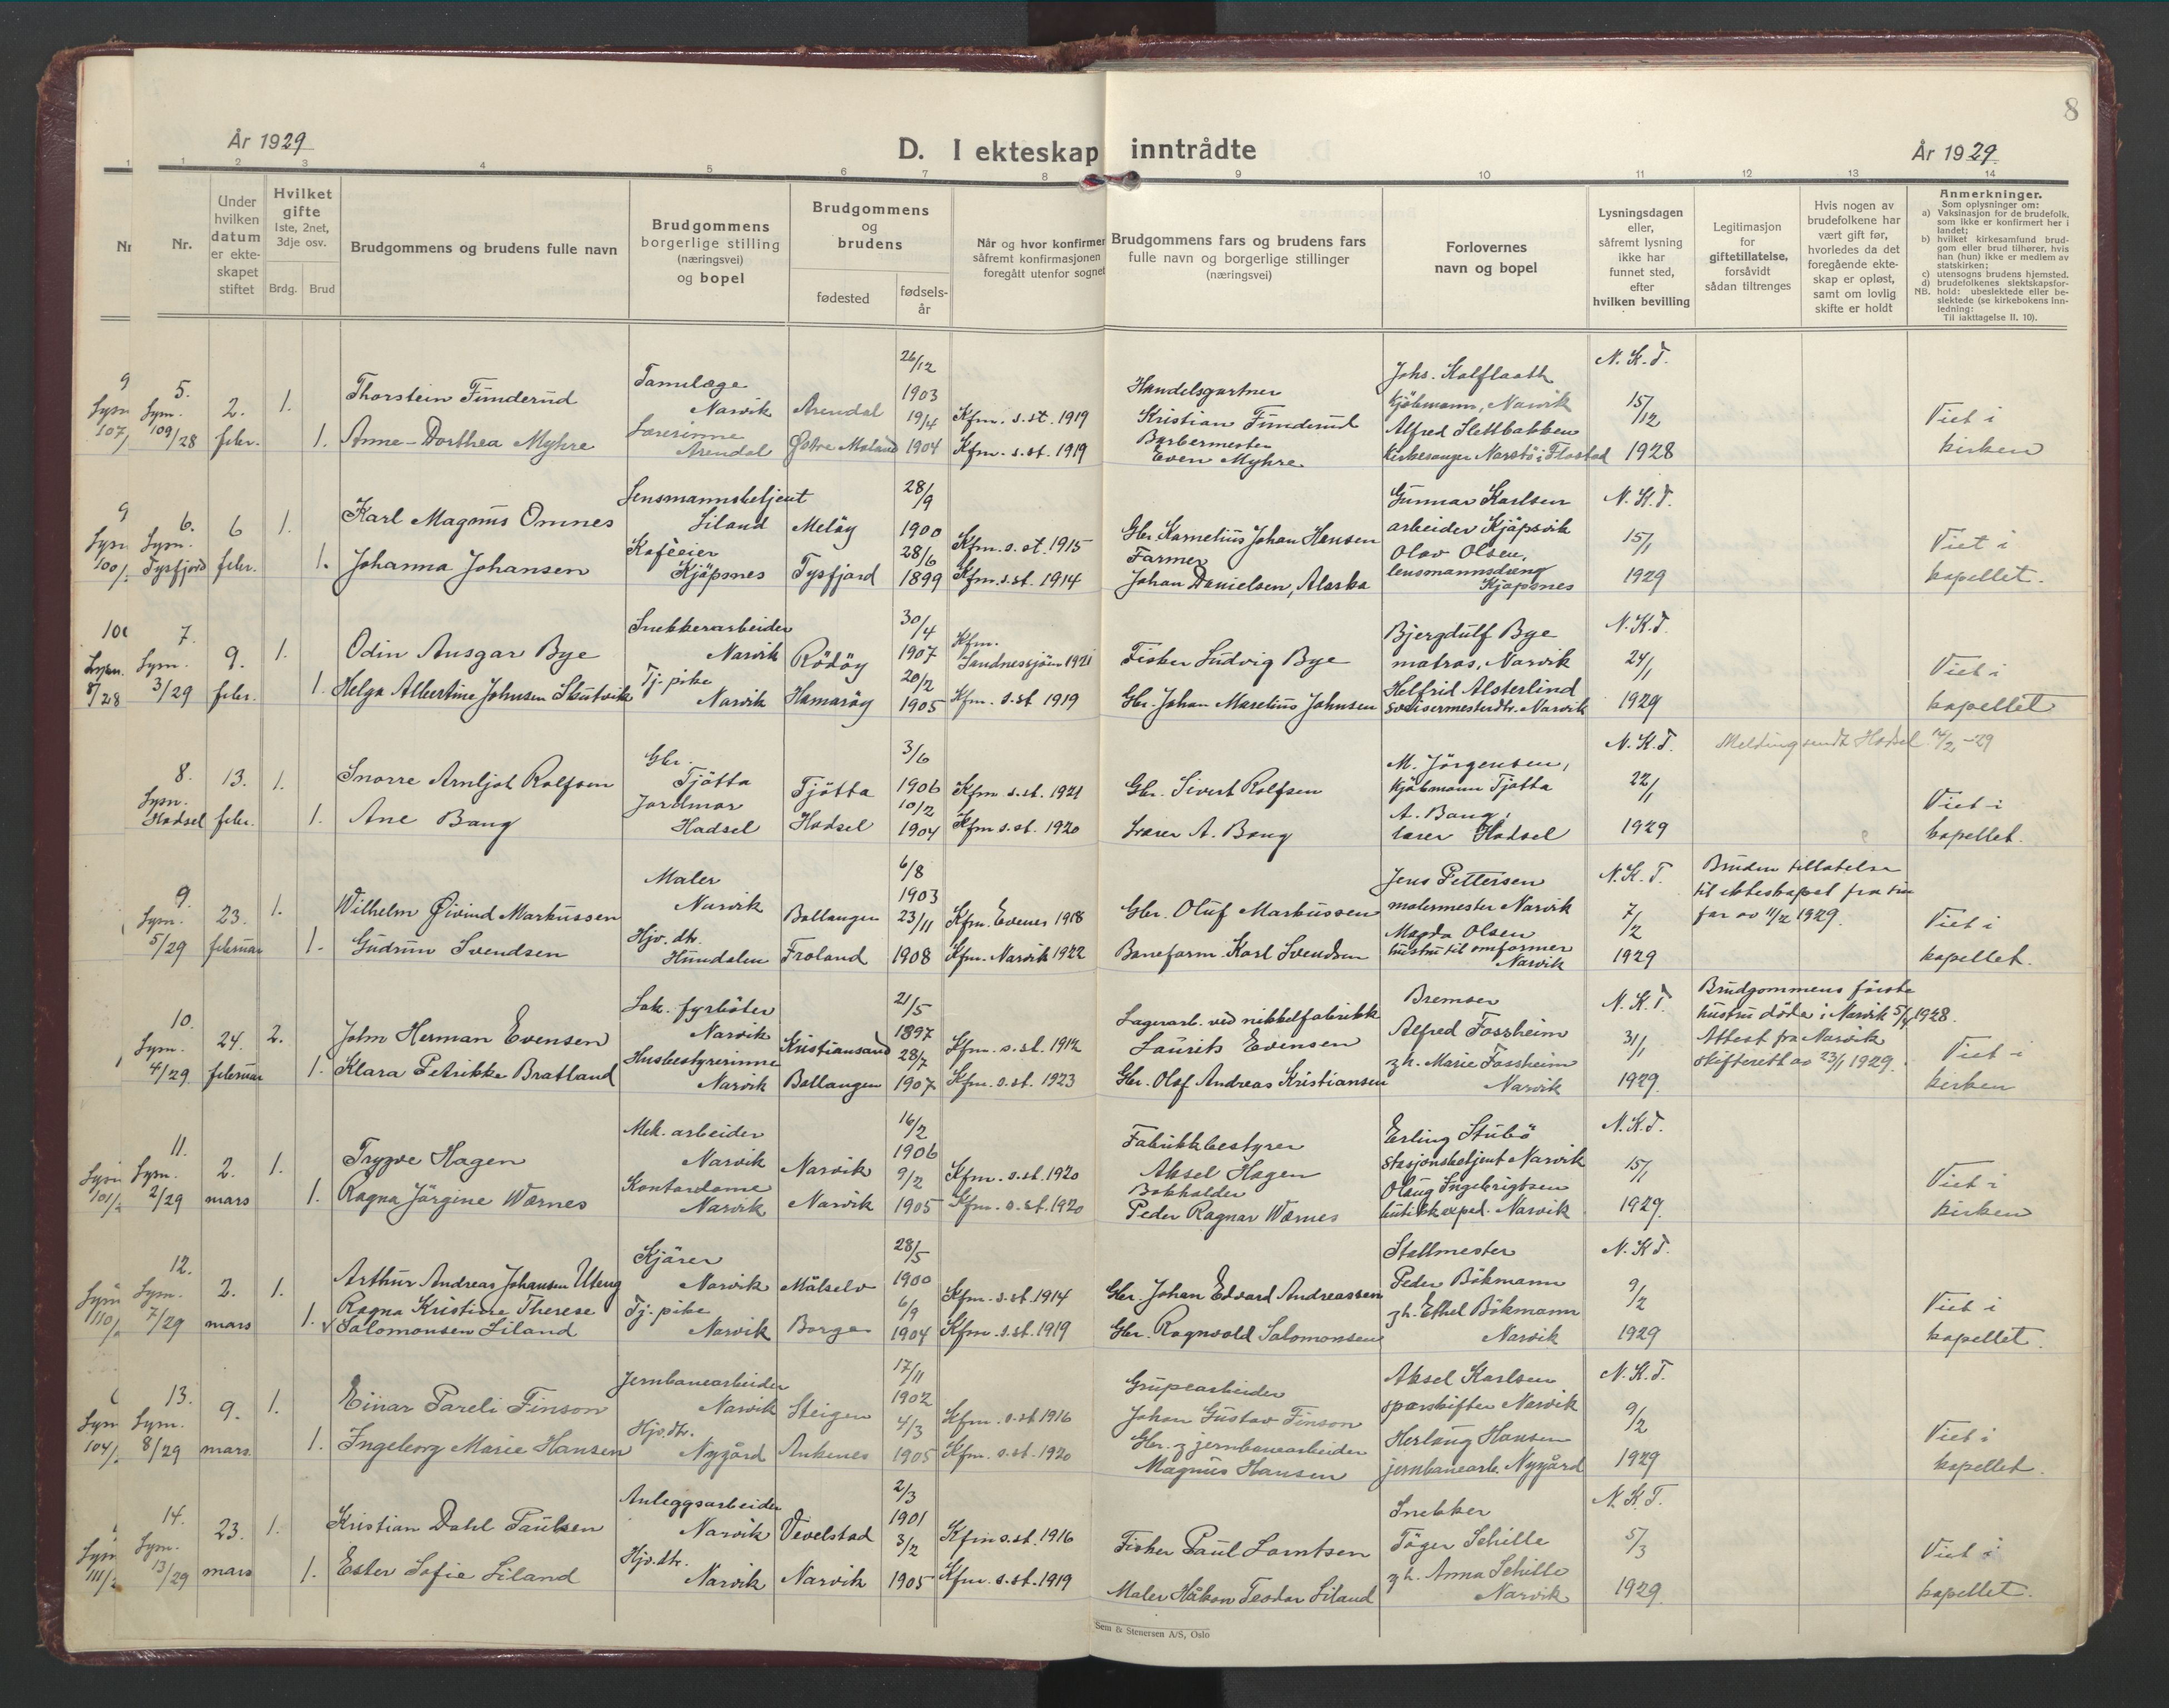 8
År 1929
D. I ekteskap inntrådte
År 1929.
1 2 3 4 5 6 7 8 9 10 11 12 13 14
Nr.
Under hvilken datum er ekteskapet stiftet
Hvilket gifte 1ste, 2net, 3dje osv.
Brdg. Brud
Brudgommens og brudens fulle navn
Brudgommens borgerlige stilling (næringsvei) og bopel
Brudgommens og brudens
fødested
fødselsår
Når og hvor konfirmer
såfremt konfirmasjonen
foregått utenfor sognet
Brudgommens fars og brudens fars fulle navn og borgerlige stillinger (næringsvei)
Forlovernes navn og bopel
Lysningsdagen eller, såfremt lysning ikke har funnet sted, efter hvilken bevilling
Legitimasjon for giftetillatelse, forsåvidt sådan tiltrenges
Hvis nogen av brudefolkene har vært gift før, hvorledes da det foregående ekteskap er opløst, samt om lovlig skifte er holdt
Anmerkninger.
Som oplysninger om:
a) Vaksinasjon for de brudefolk, som ikke er konfirmert her i landet;
b) hvilket kirkesamfund brudgom eller brud tilhører, hvis han (hun) ikke er medlem av statskirken;
c) utensogns brudens hjemsted.
d) brudefolkenes slektskapsforhold: ubeslektede eller beslektede (se kirkebokens innledning:
NB.
Til iakttagelse II. 10).
5. Lysn. 109/28
2. febr.
1. Thorstein Funderud
Tannlæge Narvik
Arendal
26/12 1903
Kfm. s. st. 1919
Handelsgartner Kristian Funderud
Johs. Kalflaath kjøbmann, Narvik
N. K. T. 15/12 1928
1. Anne-Dorthea Myhre
Lærerinne Arendal
Østre Moland
19/4 1904
Kfm. s. st. 1919
Barbermester Even Myhre
Alfred Slettbakken
Viet i kirken
6. Lysn. Tysfjord
6 febr.
1. Karl Magnus Omnes
Lensmannsbetjent Liland
Meløy
28/9 1900
Kfm. s. st. 1915
Gbr. Kornelius Johan Hansen
Gunnar Karlsen arbeider Kjøpsvik
N. K. T. 15/1 1929
1. Johanna Johansen
Kaféeier Kjøpsnes
Tysfjord
28/6 1899
Kfm. s. st. 1914
Farmer Johan Danielsen, Alaska
Olav Olsen, lensmannsdreng Kjøpsnes
Viet i kapellet.
7. Lysn. 3/29
9. febr.
1. Odin Ansgar Bye
Snekkerarbeider Narvik
Rödöy
30/4 1907
Kfm. Sandnessjöen 1921
Fisker Ludvig Bye
Bjergdulf Bye matros, Narvik
N. K. T. 24/1 1929
1. Helga Albertine Johnsen Skutvik
Tj. pike Narvik
Hamaröy
20/2 1905
Kfm. s. st 1919
Gbr. Johan Maretius Johnsen
Helfrid Alsterlind sveisermesterdtr. Narvik
Viet i kapellet
8. Lysn. Hadsel
13. febr.
1. Snorre Arnljot Rolfsen
Gbr. Tjötta
Tjötta
3/6 1906
Kfm s. st. 1921
Gbr. Sivert Rolfsen
M. Jörgensen, kjöbmann Tjötta
N. K. T. 22/1 1929
Melding sendt Hadsel 14/2 -29
1. Ane Bang
Jordmor Hadsel
Hadsel
10/2 1904
Kfm s. st. 1920
Lærer A. Bang
A. Bang, lærer Hadsel
Viet i kapellet.
9. Lysn. 5/29
23. februar
1. Wilhelm Øivind Markussen
Maler Narvik
Ballangen
6/8 1903
Kfm. Evenes 1918
Gbr. Oluf Markussen
Jens Pettersen malermester Narvik
N. K. T. 7/2 1929
Bruden tillatelse til ekteskapet fra sin far av 11/2 1929.
1. Gudrun Svendsen
Hjv. dtr. Hundalen
Froland
23/11 1908
Kfm. Narvik 1922
Baneform. Karl Svendsen
Magda Olsen hustru til omformer Narvik
Viet i kapellet.
10. Lysn. 4/29
24. februar
2. John Herman Evensen
Lok. fyrböter Narvik
Kristiansand
21/5 1897
Kfm. s. st. 1912
Lagerarb. ved nikkelfabrikk Laurits Evensen
Bremser Alfred Fossheim
N. K. T 31/1 1929.
Brudgommens förste hustru döde i Narvik 5/4 1928. Attest fra Narvik skifterett av 23/1 1929.
1. Klara Petrikke Bratland
Husbestyrerinne Narvik
Ballangen
28/7 1907
Kfm. s. st. 1923
Gbr. Olaf Andreas Kristiansen
g h. Marie Fossheim Narvik
Viet i kirken
11. Lysn. 2/29
2. mars
1. Trygve Hagen
Mek. arbeider Narvik
Narvik
16/2 1906
Kfm. s. st. 1920
Fabrikkbestyrer Aksel Hagen
Erling Stubö stasjonsbetjent Narvik
N. K. T. 15/1 1929.
1. Ragna Jörgine Wærnes
Kontordame Narvik
Narvik
9/2 1905
Kfm. s. st. 1920
Bokholder Peder Ragnar Wærnes
Olaug Ingebrigtsen butikkexped. Narvik
Viet i kirken
12. Lysn. 7/29
2. mars
1. Arthur Andreas Johansen Uteng
Kjörer Narvik
Målselv
28/5 1900
Kfm. s. st. 1914
Gbr. Johan Edvard Andreassen
Stallmester Peder Bökmann
N. K T. 9/2 1929
1. Ragna Kristine Therese Salomonsen Liland
Tj. pike Narvik
Borge
6/9 1904
Kfm. s. st. 1919
Gbr. Ragnvald Salomonsen
g h. Ethel Bökmann Narvik
Viet i kapellet.
13. Lysn. 8/29
9. mars.
1. Einar Pareli Finson
Jernbanearbeider Narvik
Steigen
17/11 1902
Kfm. s. st 1916
Grupearbeider Johan Gustav Finson
Aksel Karlsen sporskifter Narvik
N. K. T. 9/2 1929
1. Ingeborg Marie Hansen
Hjv. dtr. Nygård
Ankenes
4/3 1905
Kfm. s. st. 1920
Gbr. g jernbanearbeider Magnus Hansen
Herlaug Hansen jernbanearb. Nygård
Viet i kapellet.
14. Lysn. 13/29
23. mars
1. Kristian Dahl Paulsen
Anleggsarbeider Narvik
Vevelstad
2/3 1901
Kfm s. st. 1916
Fisker Paul Lorntsen
Snekker Töger Schille
N. K T. 5/3 1929.
1. Ester Sofie Liland
Hjv. dtr. Narvik
Narvik
3/2 1905
Kfm. s. st. 1919
Maler Håkon Teodor Liland
g h. Anna Schille Narvik
Viet i kapellet.
Sem & Stenersen A/S, Oslo